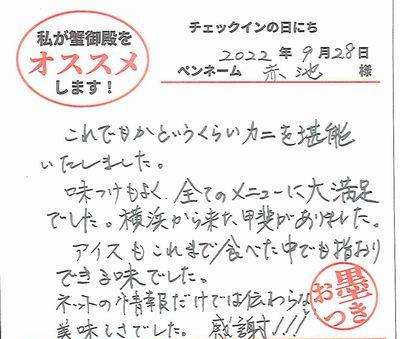 私が蟹御殿を
オススメ
します！
チェックインの日にち
2022年9月28日
ペンネーム 赤池 様
これでもかというくらいカニを堪能
いたしました。
味つけもよく、全てのメニューに大満足
でした。横浜から来た甲斐がありました。
アイスもこれまで食べた中でも指おり
できる味でした。
ネットの情報だけでは伝わらない
美味しさでした。 感謝!!!
お墨つき